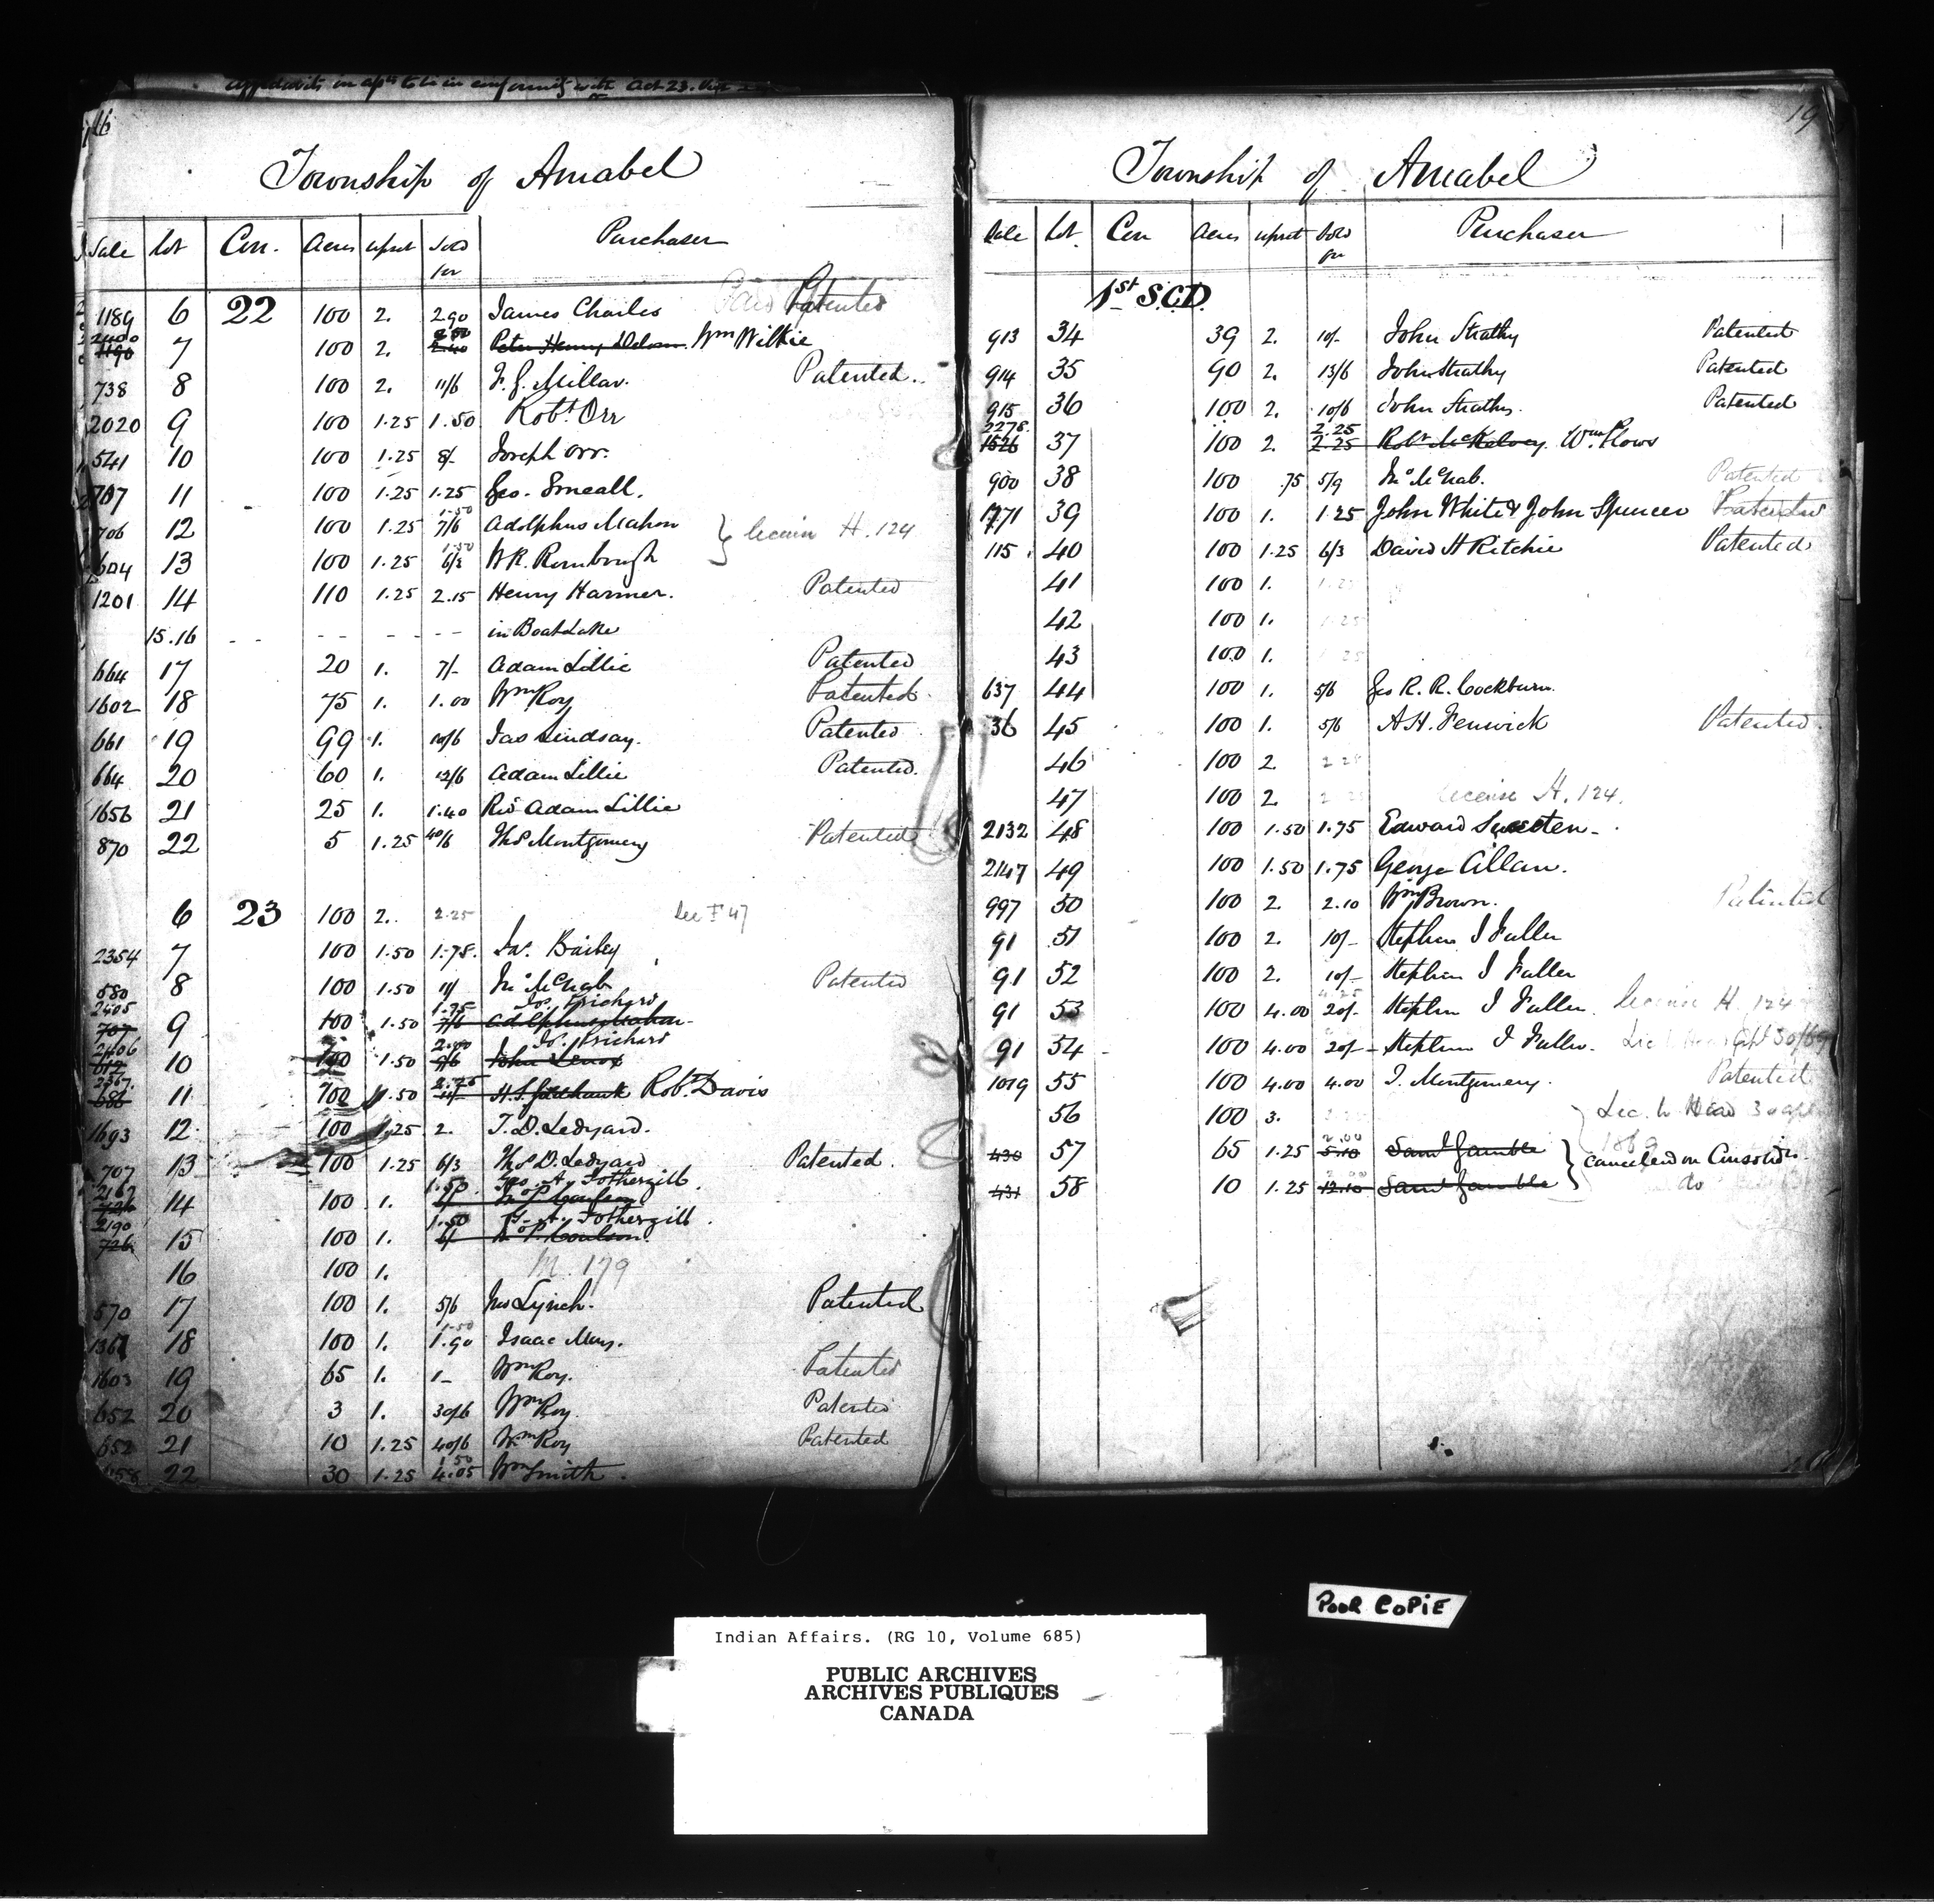 Affidavits in apts to be in conformity with Act 23. Vic
16
Township of Amabel
Sale Lot Con. Acres upset Sold for Purchaser
1189 6 22 100 2. 2.90 James Charles Patented
2400 2.50
1190 7 100 2. 2.40 Peter Henry Wm Wilkie
738 8 100 2. 11/6 F. G. Millar. Patented.
2020 9 100 1.25 1.50 Robt. Orr
541 10 100 1.25 8/- Joseph Orr.
707 11 100 1.25 1.25 Geo. Smeall.
1.50
706 12 100 1.25 7/6 Adolphus Mahon } license H. 124
1.50
604 13 100 1.25 6/3 W R. Rombough
1201 14 110 1.25 2.15 Henry Harmer. Patented
15.16 - - - - - - - - in Boat Lake
664 17 20 1. 7/- Adam Lillie Patented
1602 18 75 1. 1.00 Wm Roy Patented
661 19 99 1. 10/6 Jas Lindsay. Patented
664 20 60 1. 12/6 Adam Lillie Patented.
1656 21 25 1. 1.40 Rev Adam Lillie
870 22 5 1.25 40/6 Thos Montgomery Patented
6 23 100 2. 2.25 See F 47
2354 7 100 1.50 1.75. Bailey
580 8 100 1.50 11/ Jno McNab Patented
2405 1.75 Jos. Prichard
707 9 100 1.50 7/6 Adolphus Mahon
2406 2.00 Jos. Prichard
612 10 100 1.50 9/6 John Lenox
2367. 2.25
686 11 100 1.50 11/ Robt. Davis
1693 12 100 1.25 2. T. D. Ledyard.
707 13 100 1.25 6/3 Thos D. Ledyard Patented.
2189 1.50 Geo. A. Fothergill.
726 14 100 1. 6/ D. P. Coulson
2190 1.50 G. A. Fothergill.
726 15 100 1. 6/ D. P. Coulson.
16 100 1. M. 179
570 17 100 1. 5/6 Jno Lynch. Patented
1.50
1361 18 100 1. 1.90 Isaac May.
1603 19 65 1. 1- Wm Roy. Patented
652 20 3 1. 30/6 Wm Roy Patented
652 21 10 1.25 40/6 Wm Roy Patented
1.50
22 30 1.25 4.05 Wm Smith.
19
Township of Amabel
Sale Lot. Con Acres upset Sold for Purchaser
1st S.C.D.
913 34 39 2. 10/- John Strathy Patented
914 35 90 2. 13/6 John Strathy Patented
915 36 100 2. 10/6 John Strathy. Patented
2278. 2.25
1526 37 100 2. 2.25 Robt McKelvey Wm Plows
900 38 100 .75 5/9 Jno McNab. Patented
1771 39 100 1. 1.25 John White & John Spencer Patented
115 40 100 1.25 6/3 David H Ritchie Patented
41 100 1. 1.25
42 100 1. 1.25
43 100 1. 1.25
637 44 100 1. 5/6 Geo R. R. Cockburn.
36 45 100 1. 5/6 A H. Fenwick Patented.
46 100 2. 2.25
47 100 2. 2.25 license H. 124.
2132 48 100 1.50 1.75 Edward
2147 49 100 1.50 1.75 George Allan.
997 50 100 2. 2.10 Wm Brown. Patented
91 51 100 2. 10/- Stephen I Fuller
91 52 100 2. 10/- Stephen I Fuller
91 53 100 4.00 20/- Stephen I Fuller. license H. 124
91 54 100 4.00 20/- Stephen I Fuller.
1019 55 100 4.00 4.00 J. Montgomery. Patented
56 100 3. Lic. to Head 30 Apl
2.00 1869
430 57 65 1.25 5.10 Saml Gamble } Canceled on Consolidn.
2.00
431 58 10 1.25 12.10 Saml Gamble do
POOR COPIE
Indian Affairs. (RG 10, Volume 685)
PUBLIC ARCHIVES
ARCHIVES PUBLIQUES
CANADA